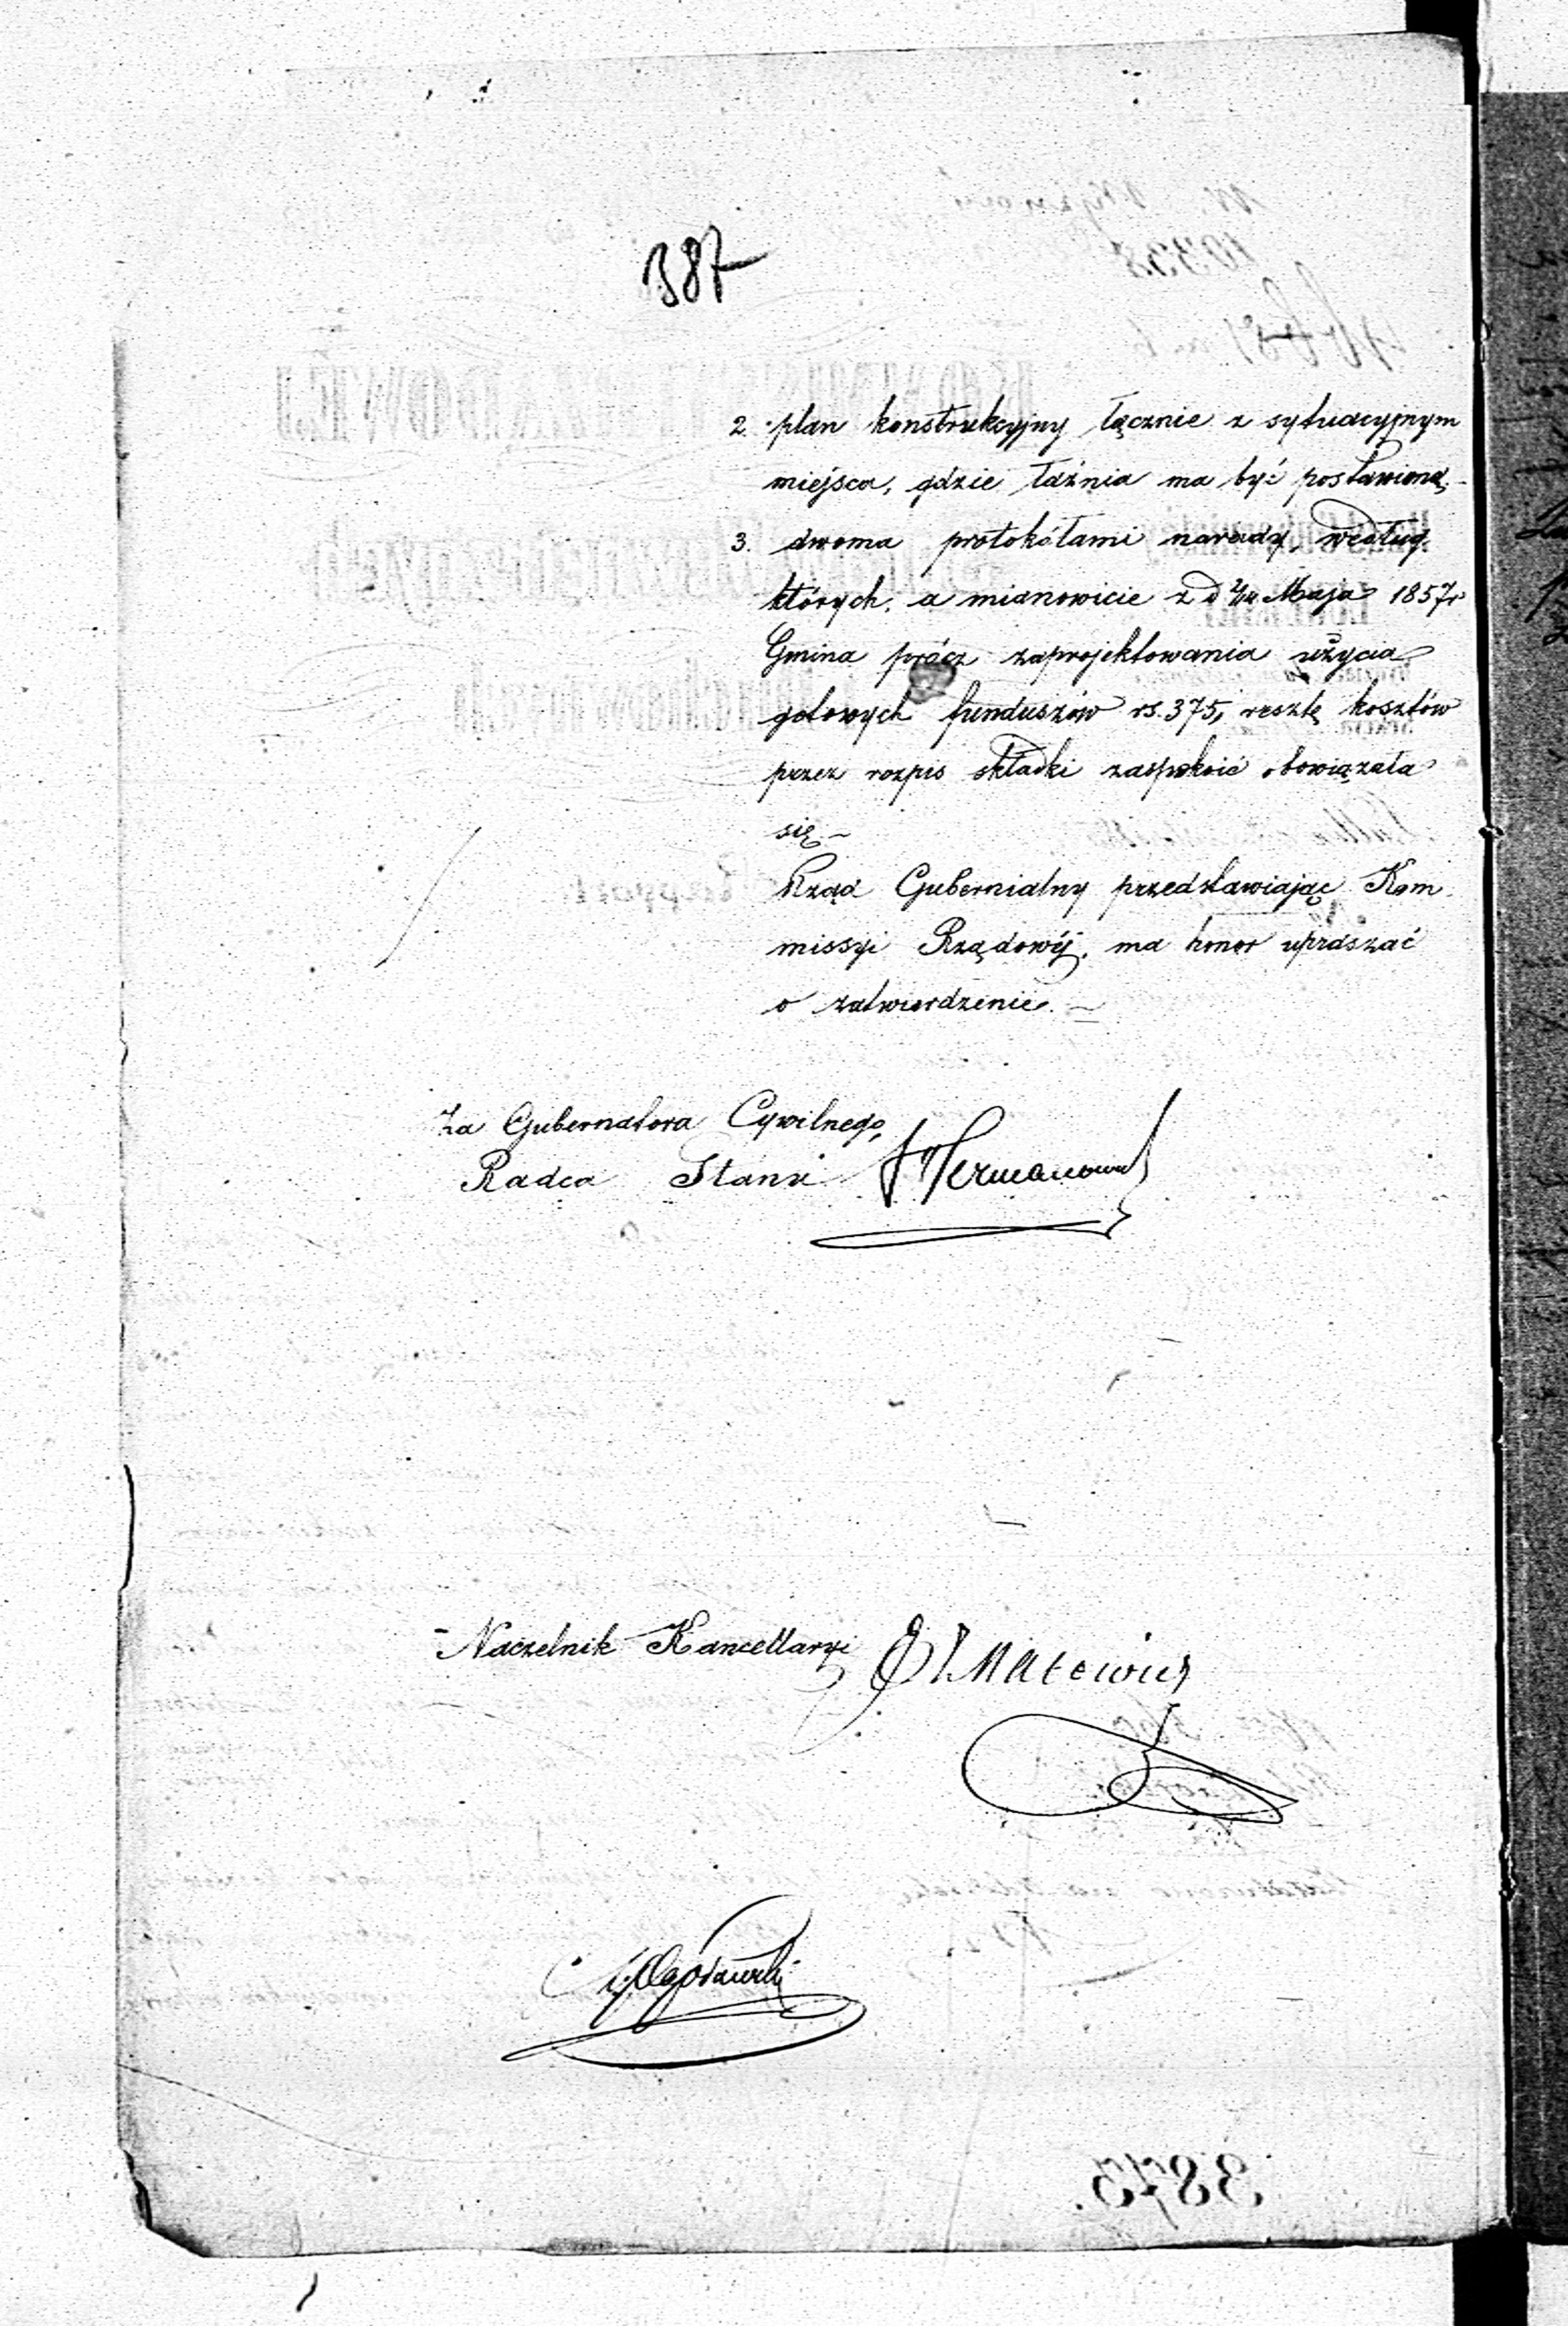 387
2. plan konstrukcyjny łącznie z sytuacyjnym
miejsca, gdzie łaźnia ma być postawioną,
3. dwoma protokółami narady, według
których, a mianowicie z d Maja 1857 r
Gmina prócz zaprojektowania użycia
gotowych funduszów rs. 375, resztę kosztów
przez rozpis składki zaspokoić obowiązała
się –
Rząd Gubernialny przedstawiając Kom
missyi Rządowéj, ma honor upraszać
o zatwierdzenie. –
Za Gubernatora Cywilnego,
Radca Stanu
Naczelnik Kancellaryi
3873.